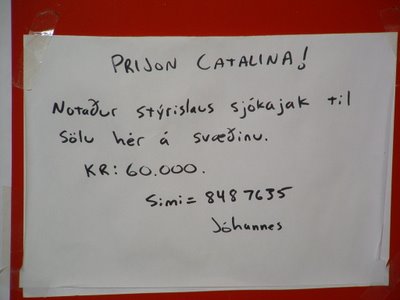 PRIJON CATALINA!
Notaður stýrislaus sjókajak til
Sölu hér á svæðinu.
KR: 60.000.
Simi = 8487635
Jóhannes